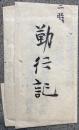 二時
勤行記